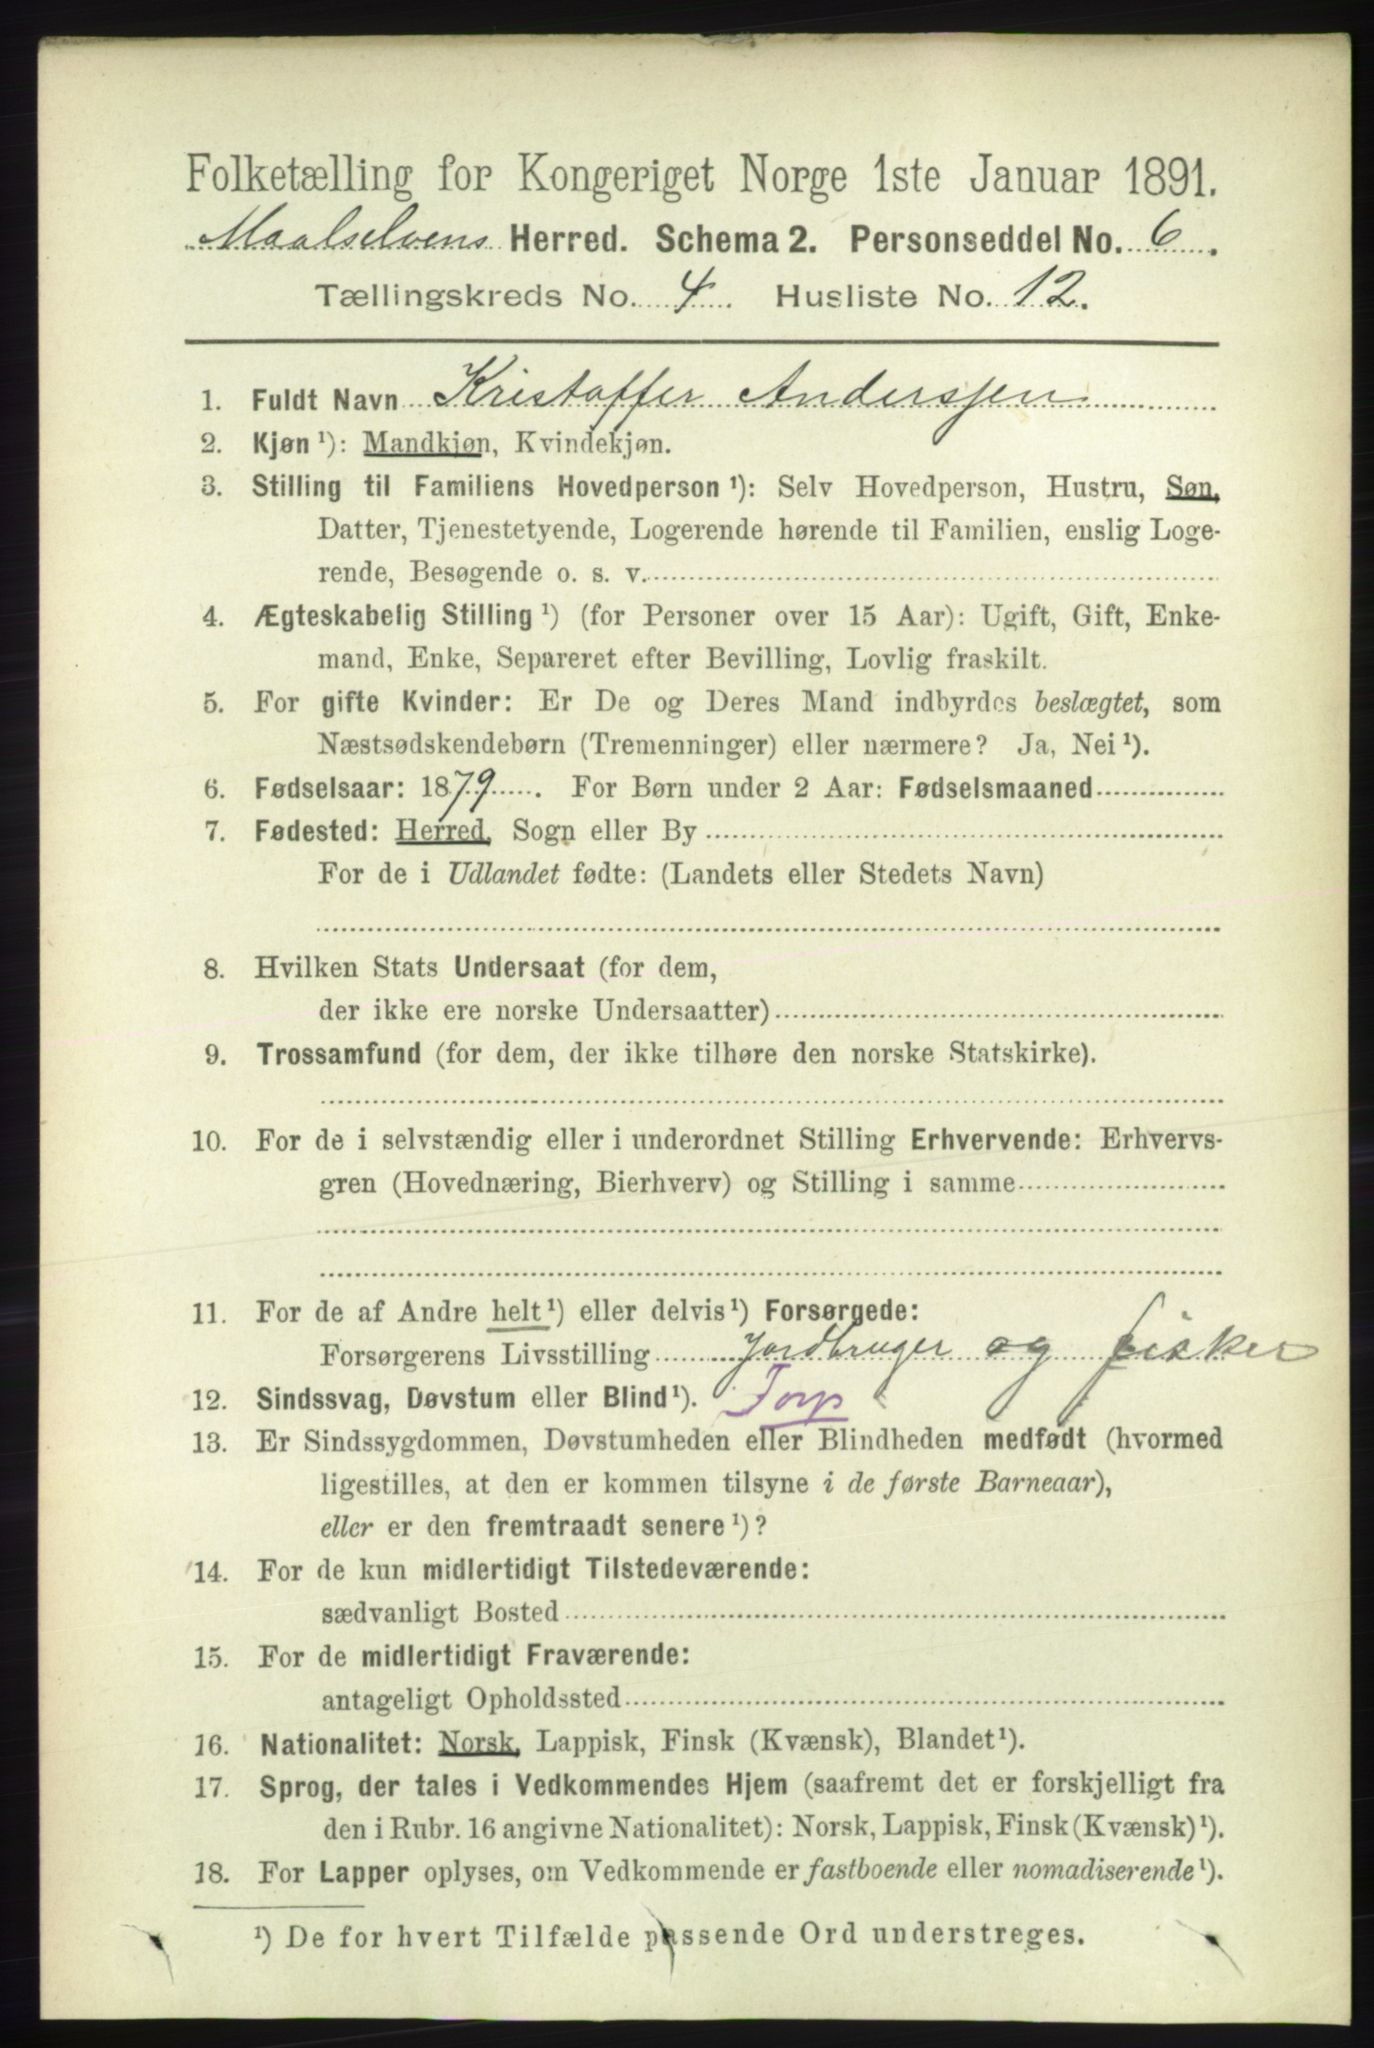 Folketælling for Kongeriget Norge 1ste Januar 1891.
Maalselvens Herred. Schema 2. Personseddel No. 6.
Tællingskreds No. 4. Husliste No. 12.
1. Fuldt Navn Kristoffer Anderssen
2. Kjøn ¹): Mandkjøn, Kvindekjøn.
3. Stilling til Familiens Hovedperson ¹): Selv Hovedperson, Hustru, Søn,
Datter, Tjenestetyende, Logerende hørende til Familien, enslig Loge-
rende, Besøgende o. s. v.
4. Ægteskabelig Stilling ¹) (for Personer over 15 Aar): Ugift, Gift, Enke-
mand, Enke, Separeret efter Bevilling, Lovlig fraskilt.
5. For gifte Kvinder: Er De og Deres Mand indbyrdes beslægtet, som
Næstsødskendebørn (Tremenninger) eller nærmere? Ja, Nei ¹).
6. Fødselsaar: 1879. For Børn under 2 Aar: Fødselsmaaned
7. Fødested: Herred, Sogn eller By
For de i Udlandet fødte: (Landets eller Stedets Navn)
8. Hvilken Stats Undersaat (for dem,
der ikke ere norske Undersaatter)
9. Trossamfund (for dem, der ikke tilhøre den norske Statskirke).
10. For de i selvstændig eller i underordnet Stilling Erhvervende: Erhvervs-
gren (Hovednæring, Bierhverv) og Stilling i samme
11. For de af Andre helt ¹) eller delvis ¹) Forsørgede:
Forsørgerens Livsstilling Jordbruger og fisker
12. Sindssvag, Døvstum eller Blind ¹).
13. Er Sindssygdommen, Døvstumheden eller Blindheden medfødt (hvormed
ligestilles, at den er kommen tilsyne i de første Barneaar),
eller er den fremtraadt senere ¹)?
14. For de kun midlertidigt Tilstedeværende:
sædvanligt Bosted
15. For de midlertidigt Fraværende:
antageligt Opholdssted
16. Nationalitet: Norsk, Lappisk, Finsk (Kvænsk), Blandet ¹).
17. Sprog, der tales i Vedkommendes Hjem (saafremt det er forskjelligt fra
den i Rubr. 16 angivne Nationalitet): Norsk, Lappisk, Finsk (Kvænsk) ¹).
18. For Lapper oplyses, om Vedkommende er fastboende eller nomadiserende ¹).
¹) De for hvert Tilfælde passende Ord understreges.